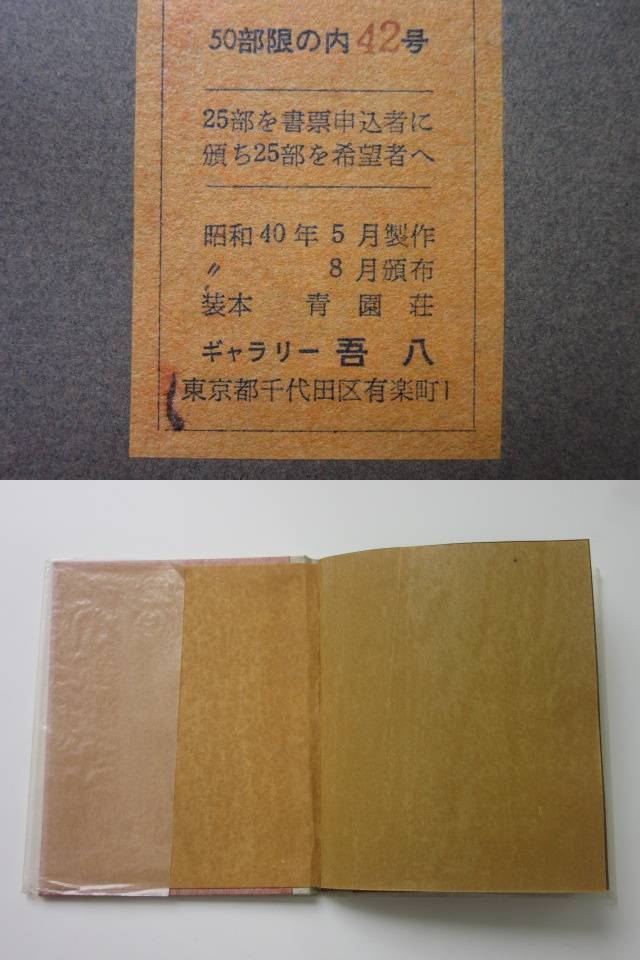 50部限の内42号
25部を書票申込者に
頒ち25部を希望者へ
昭和40年5月製作
〃 8月頒布
装本 青園荘
ギャラリー 吾八
東京都千代田区有楽町1